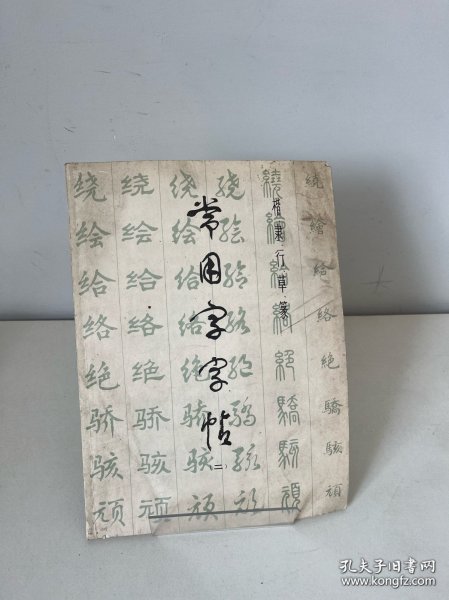 常用字字帖
(二)
楷·隶·行·草·篆
绕绘给络绝骄骇顽
绕绘给络绝骄骇顽
绕绘给络绝骄骇顽
绕绘给络绝骄骇顽
繞繪給絡絶驕駭頑
孔夫子旧书网
www.kongfz.com